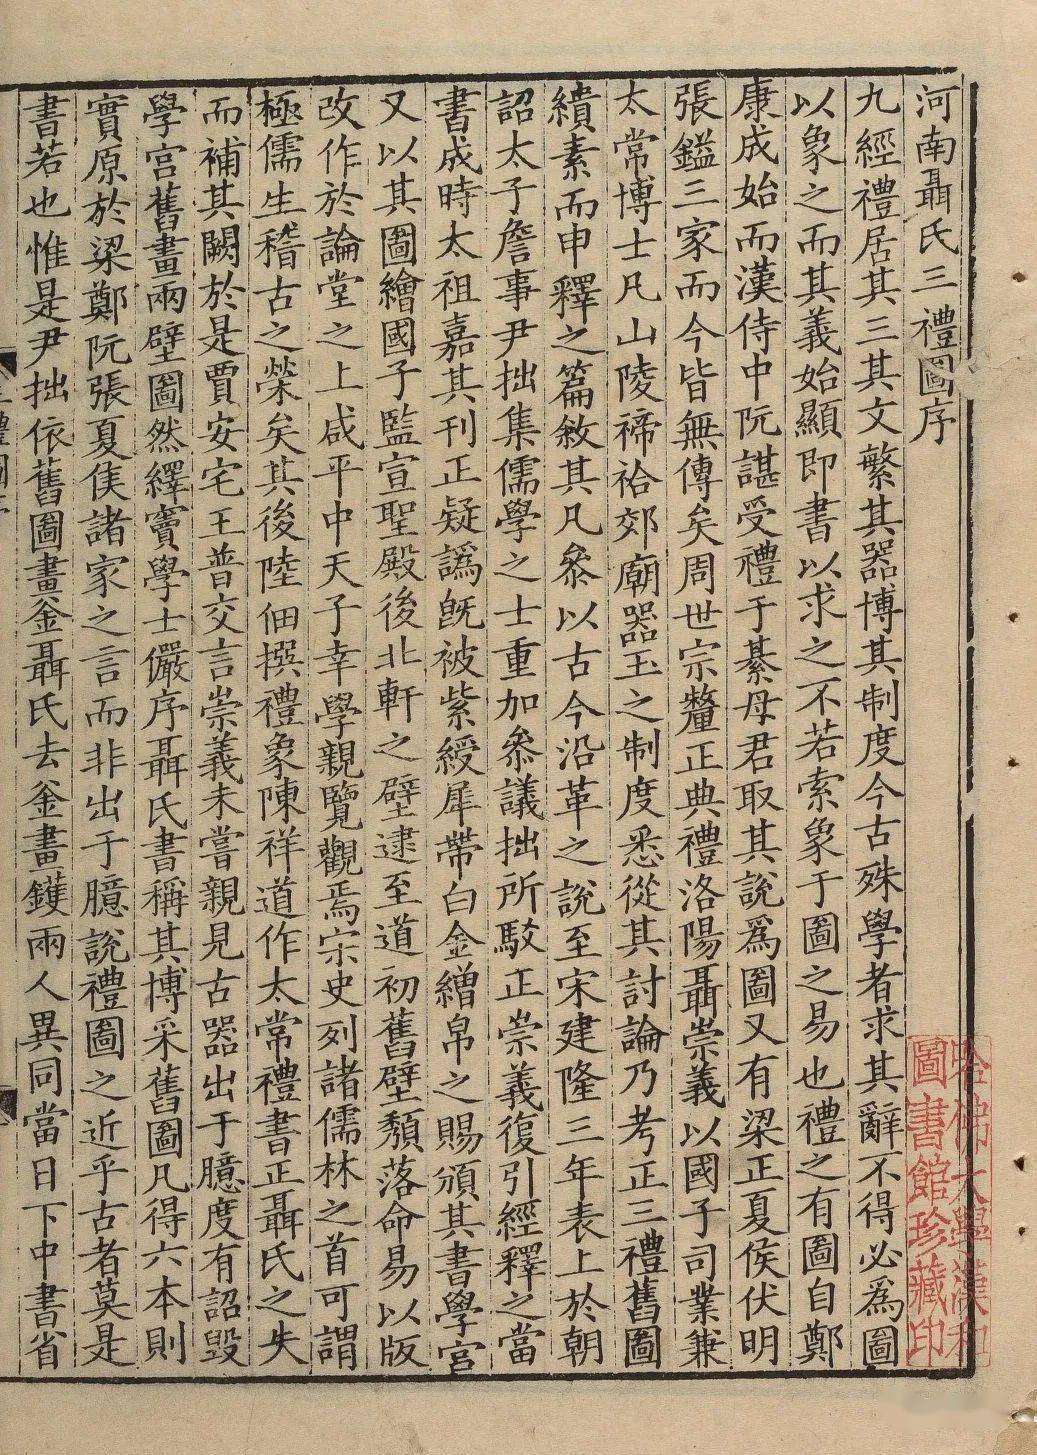 河南聶氏三禮圖序
九經禮居其三其文繁其器博其制度今古殊學者求其辭不得必爲圖
以象之而其義始顯即書以求之不若索象于圖之易也禮之有圖自鄭
康成始而漢侍中阮諶受禮于綦母君取其說爲圖又有梁正夏侯伏明
張鎰三家而今皆無傳矣周世宗釐正典禮洛陽聶崇義以國子司業兼
太常博士凡山陵禘祫郊廟器玉之制度悉從其討論乃考正三禮舊圖
繢素而申釋之篇敘其凡參以古今沿革之說至宋建隆三年表上於朝
詔太子詹事尹拙集儒學之士重加參議拙所駁正崇義復引經釋之當
書成時太祖嘉其刊正疑譌旣被紫綬犀帶白金繒帛之賜頒其書學宮
又以其圖繪國子監宣聖殿後北軒之壁逮至道初舊壁頽落命易以版
改作於論堂之上咸平中天子幸學親覽觀焉宋史列諸儒林之首可謂
極儒生稽古之榮矣其後陸佃撰禮象陳祥道作太常禮書正聶氏之失
而補其闕於是賈安宅王普交言崇義未嘗親見古器出于臆度有詔毀
學宮舊畫兩壁圖然繹竇學士儼序聶氏書稱其博采舊圖凡得六本則
實原於梁鄭阮張夏侯諸家之言而非出于臆說禮圖之近乎古者莫是
書若也惟是尹拙依舊圖畫釜聶氏去釜畫鑊兩人異同當日下中書省
哈佛大學漢和
圖書館珍藏印